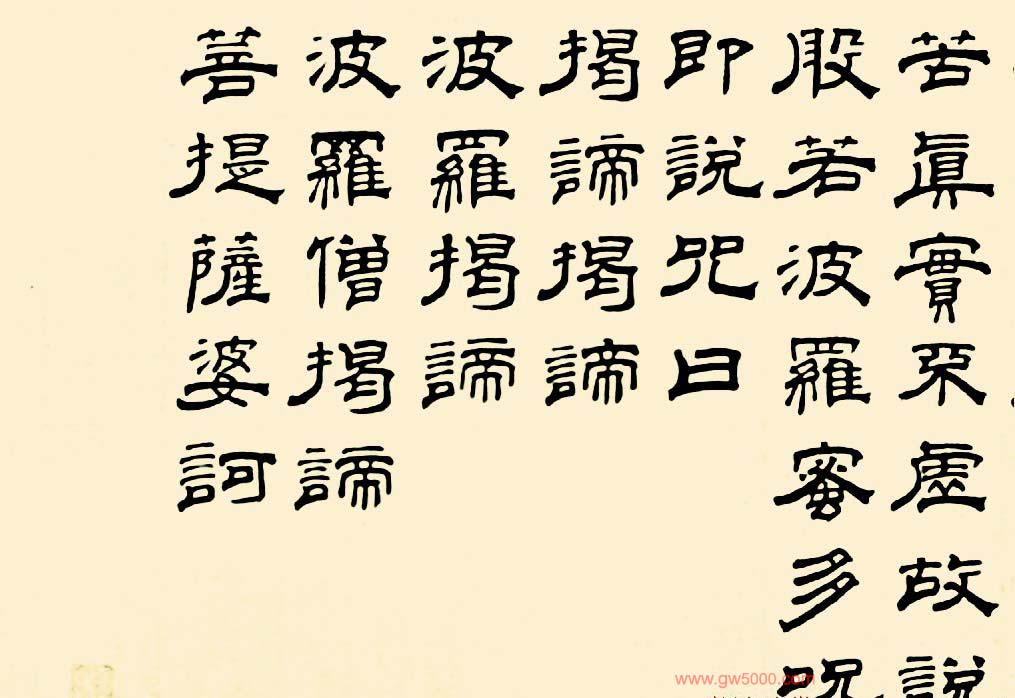 苦真實不虛故說
般若波羅蜜多咒
即說咒曰
揭諦揭諦
波羅揭諦
波羅僧揭諦
菩提薩婆訶
www.gw5000.com